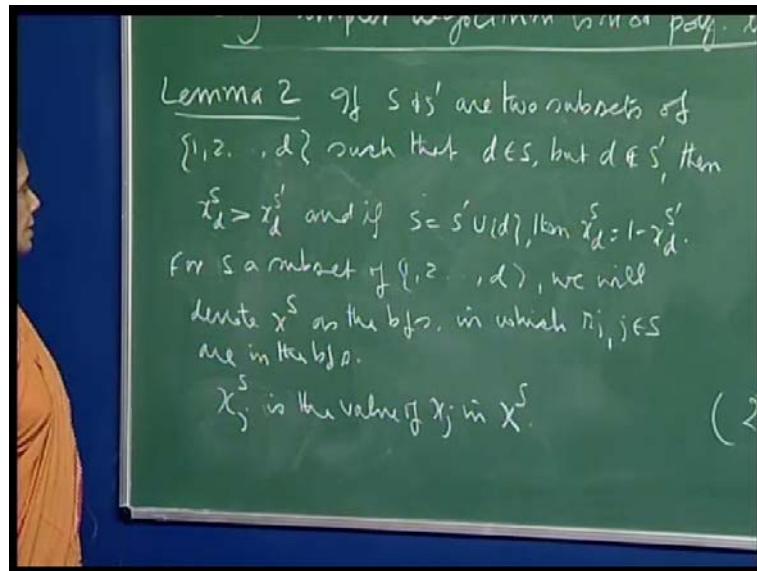 simplex algorithm is not poly.
Lemma 2 If S & S' are two subsets of
{1, 2, .., d} such that d ∈ S, but d ∉ S', then
x_d^S > x_d^{S'} and if S = S' ∪ {d}, then x_d^S = 1 - x_d^{S'}.
For S a subset of {1, 2 .., d}, we will
denote x^S as the bfs. in which r_j, j ∈ S
are in the bfs.
x_j^S is the value of x_j in x^S.
(2